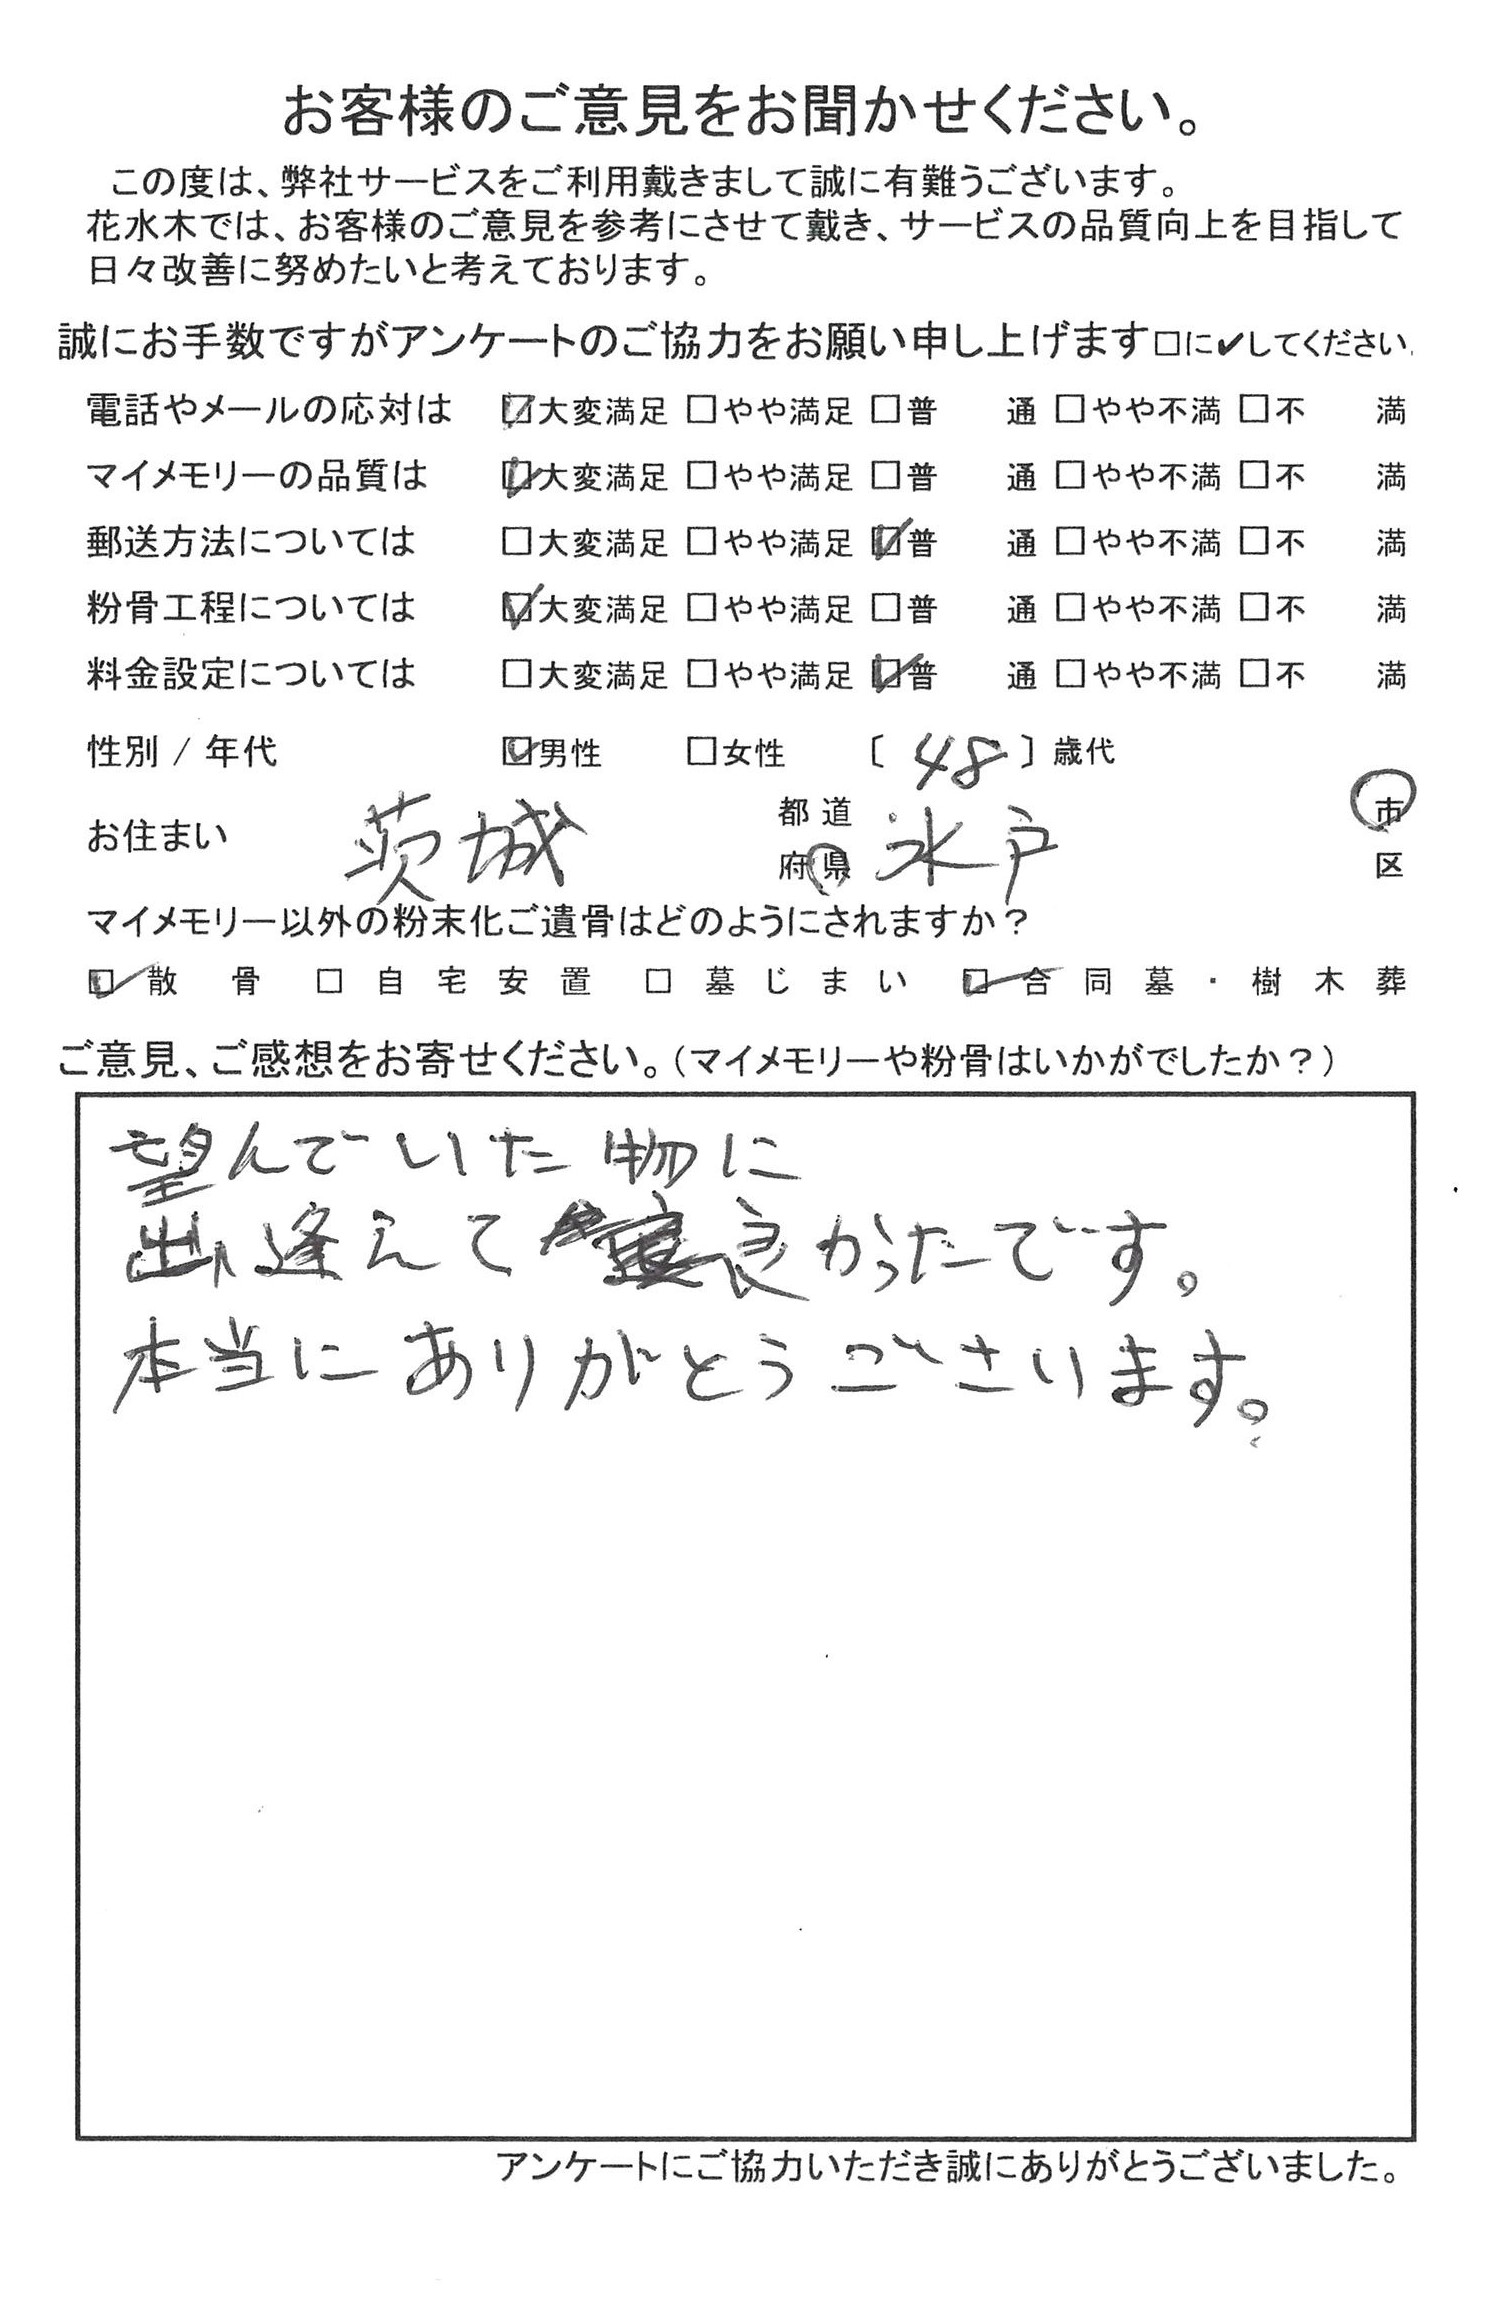 お客様のご意見をお聞かせください。
この度は、弊社サービスをご利用戴きまして誠に有難うございます。
花水木では、お客様のご意見を参考にさせて戴き、サービスの品質向上を目指して
日々改善に努めたいと考えております。
誠にお手数ですがアンケートのご協力をお願い申し上げます□に✔してください.
電話やメールの応対は ☑大変満足 □やや満足 □普 通 □やや不満 □不 満
マイメモリーの品質は ☑大変満足 □やや満足 □普 通 □やや不満 □不 満
郵送方法については □大変満足 □やや満足 ☑普 通 □やや不満 □不 満
粉骨工程については ☑大変満足 □やや満足 □普 通 □やや不満 □不 満
料金設定については □大変満足 □やや満足 ☑普 通 □やや不満 □不 満
性別 / 年代 ☑男性 □女性 〔 48 〕歳代
お住まい 茨城 都道府県 水戸 市区
マイメモリー以外の粉末化ご遺骨はどのようにされますか？
☑散骨 □自宅安置 □墓じまい ☑合同墓・樹木葬
ご意見、ご感想をお寄せください。（マイメモリーや粉骨はいかがでしたか？）
望んでいた物に
出逢えて良かったです。
本当にありがとうございます。
アンケートにご協力いただき誠にありがとうございました。